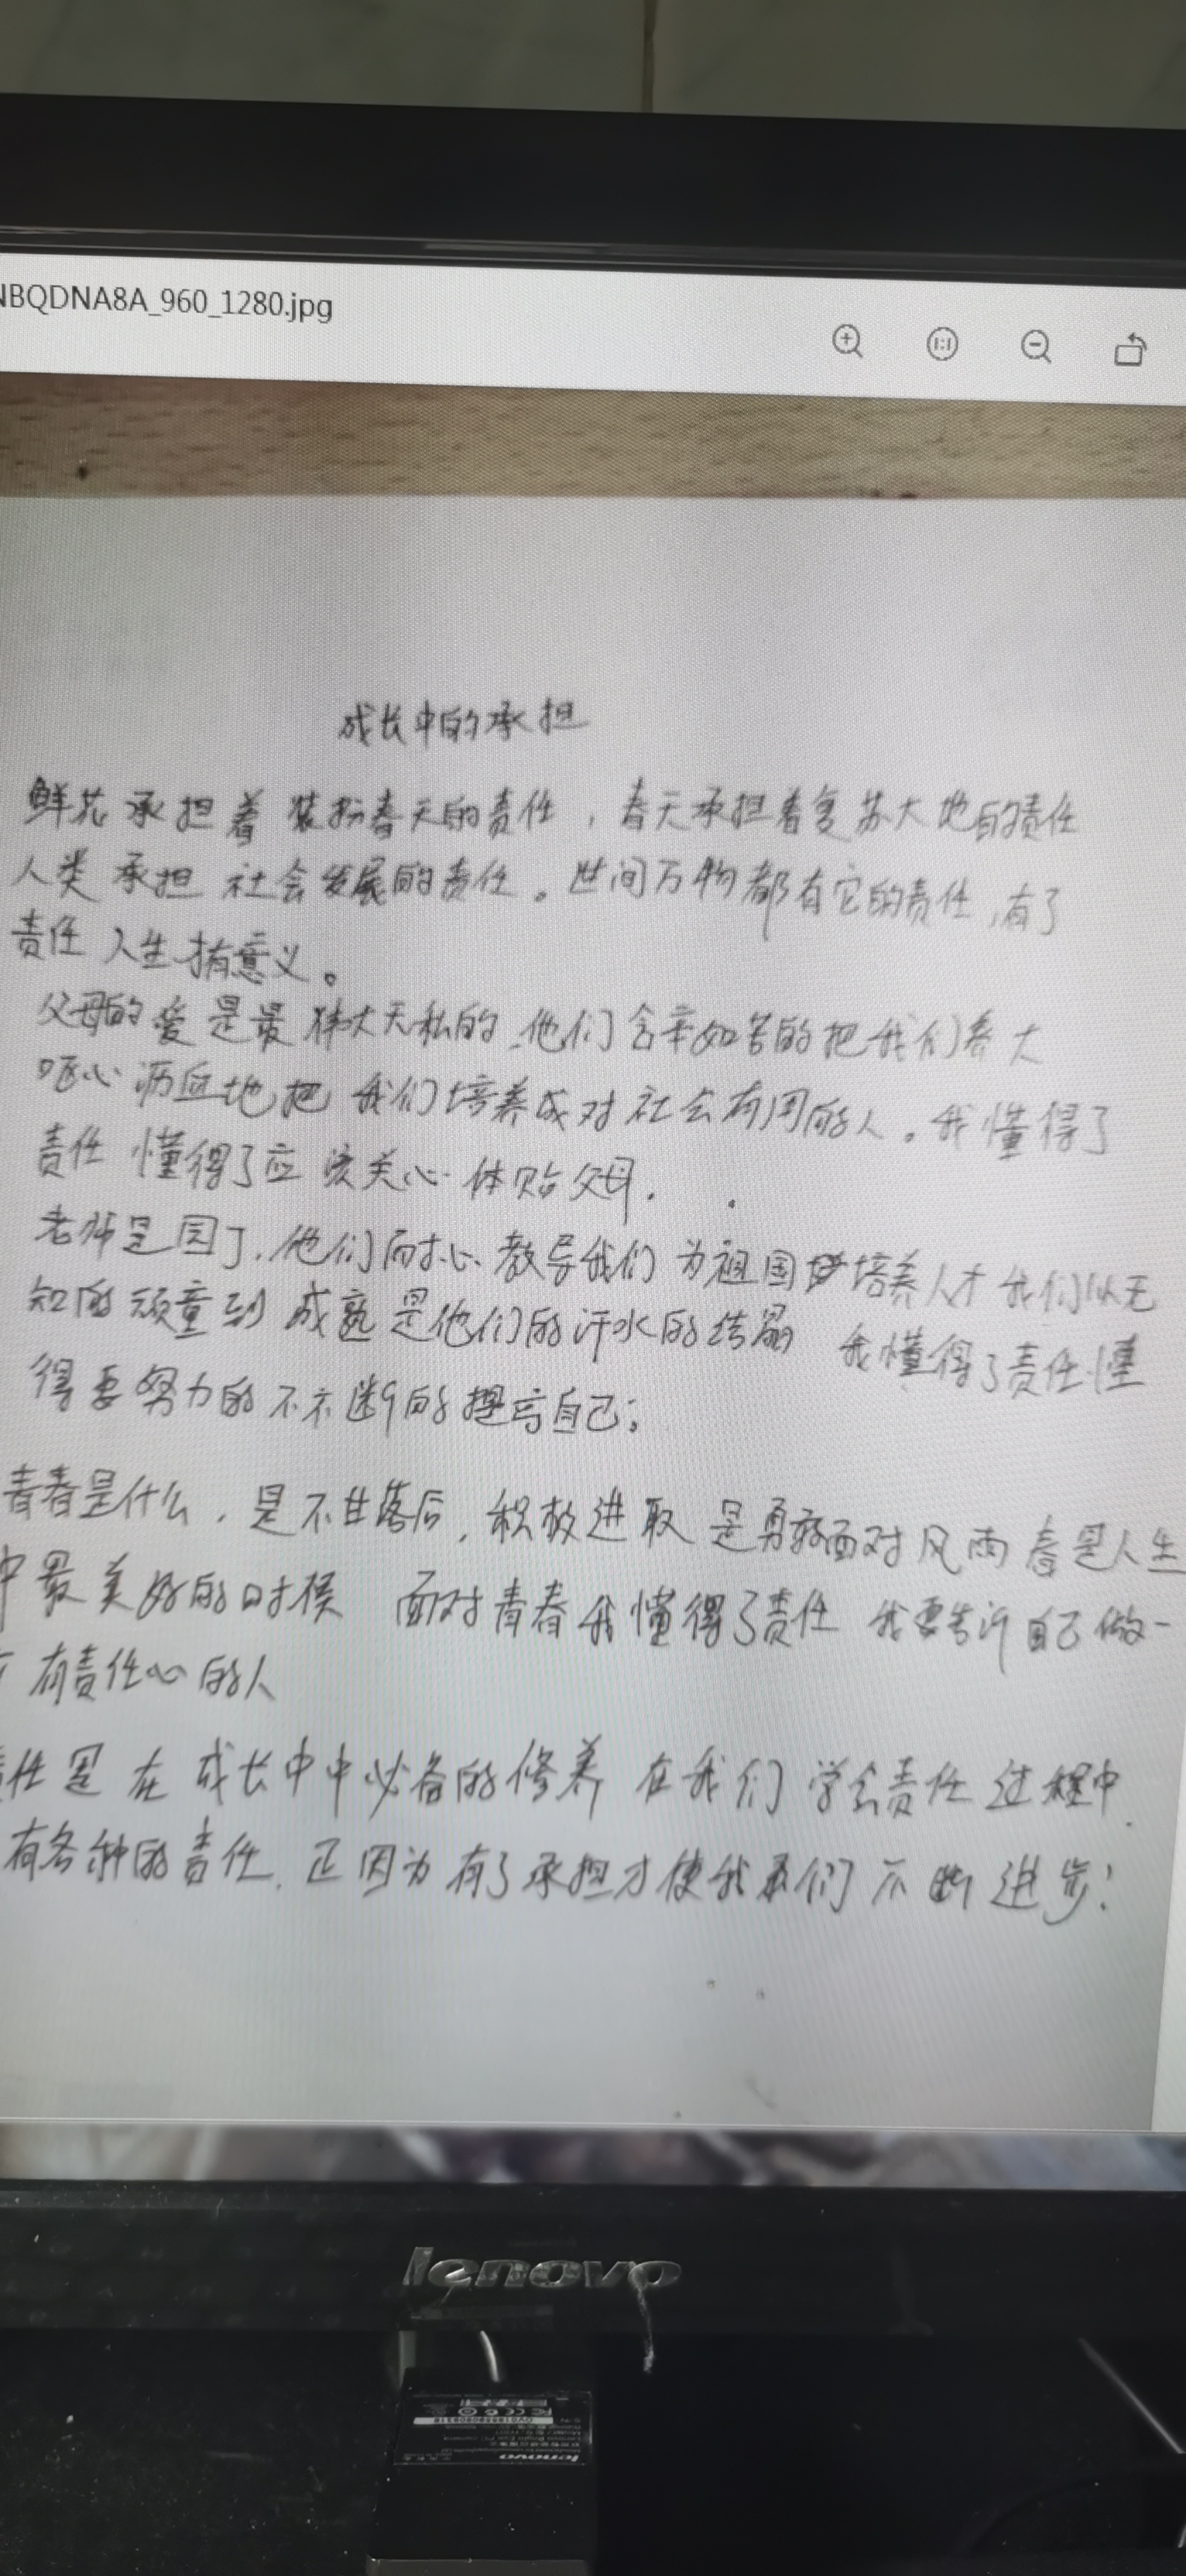 NBQDNA8A_960_1280.jpg
成长中的承担
鲜花承担着装扮春天的责任，春天承担着复苏大地的责任
人类承担社会发展的责任。世间万物都有它的责任，有了
责任人生才有意义。
父母的爱是最伟大无私的，他们含辛如苦的把我们养大
呕心沥血地把我们培养成对社会有用的人。我懂得了
责任 懂得了应该关心体贴父母.
老师是园丁.他们耐心教导我们为祖国培养人才我们从无
知的顽童到成熟是他们的汗水的结晶 我懂得了责任懂
得要努力的不不断的提高自己;
青春是什么.是不甘落后,积极进取是勇敢面对风雨春是人生
中最美好的时候 面对青春我懂得了责任 我要告诉自己做一
有责任心的人
任是在成长中中必备的修养 在我们学会责任过程中.
有各种的责任.正因为有了承担才使我们不断进步!
lenovo